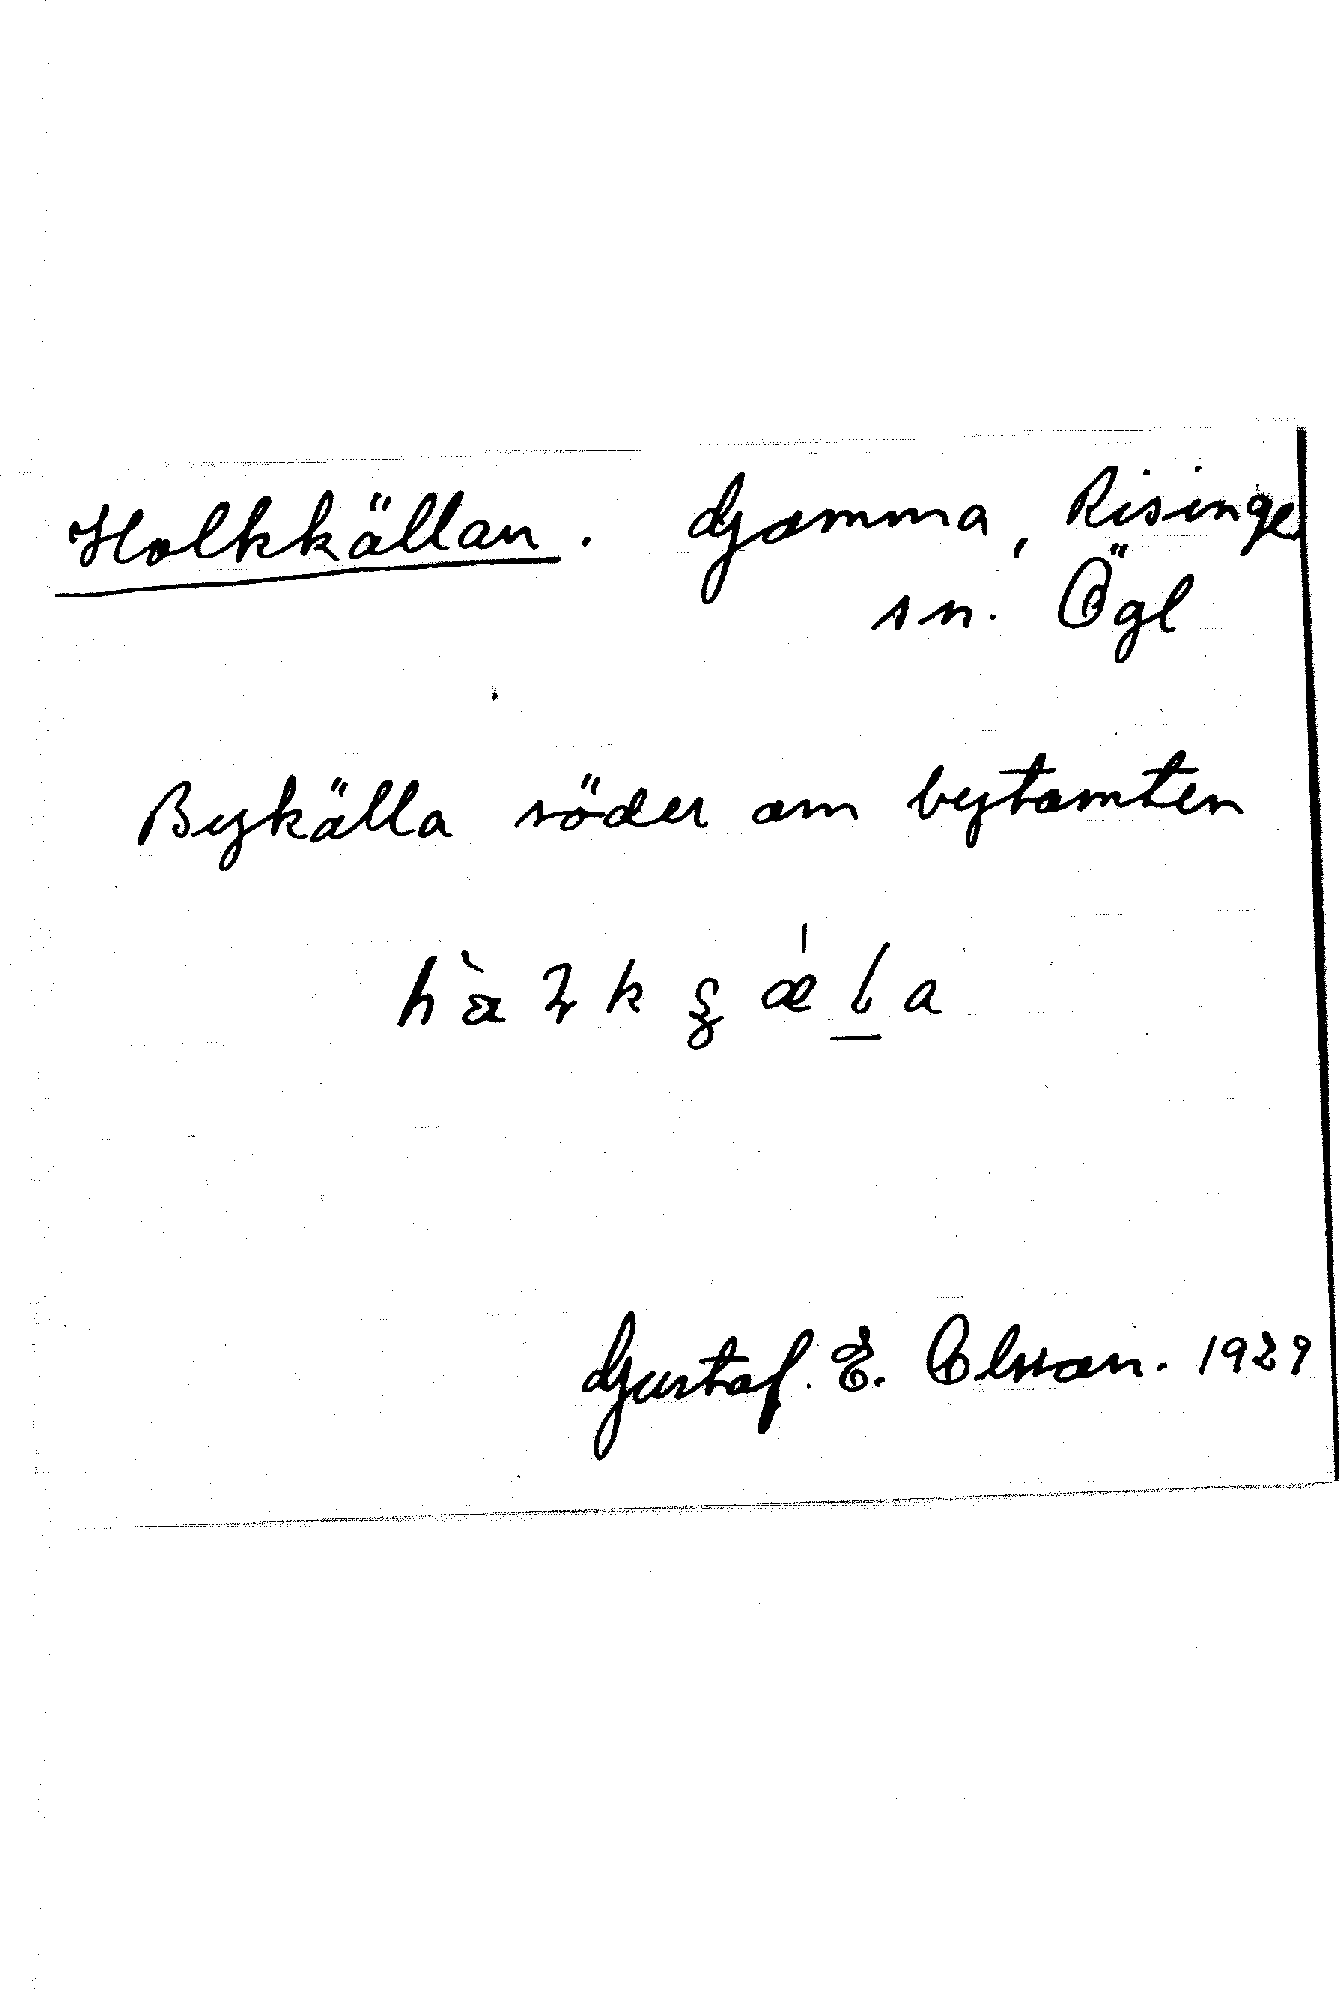 Holkkällan. Gomma, Risinge
sn. Ögl
Bykälla söder om bytomten
Gustaf. E. Olsson. 1929